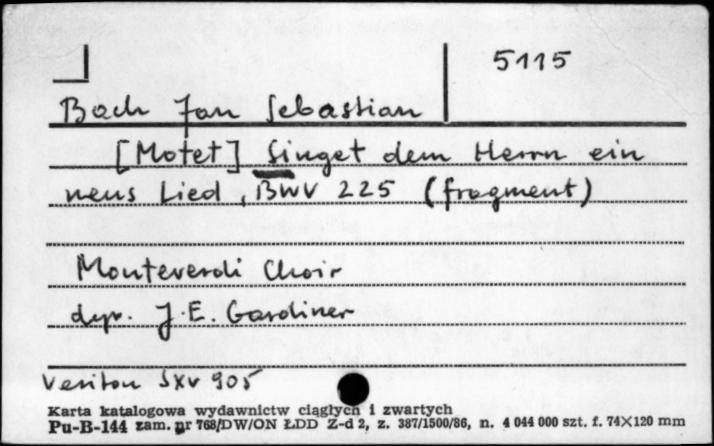 5115
Bach Jan Sebastian
[Motet] Singet dem Herrn ein
neus Lied, BWV 225 (fragment)
Monteverdi Choir
dyr. J. E. Gardiner
Veriton SXV 905
Karta katalogowa wydawnictw ciągłych i zwartych
Pu-B-144 zam. nr 768/DW/ON ŁDD Z-d 2, z. 387/1500/86, n. 4 044 000 szt. f. 74×120 mm